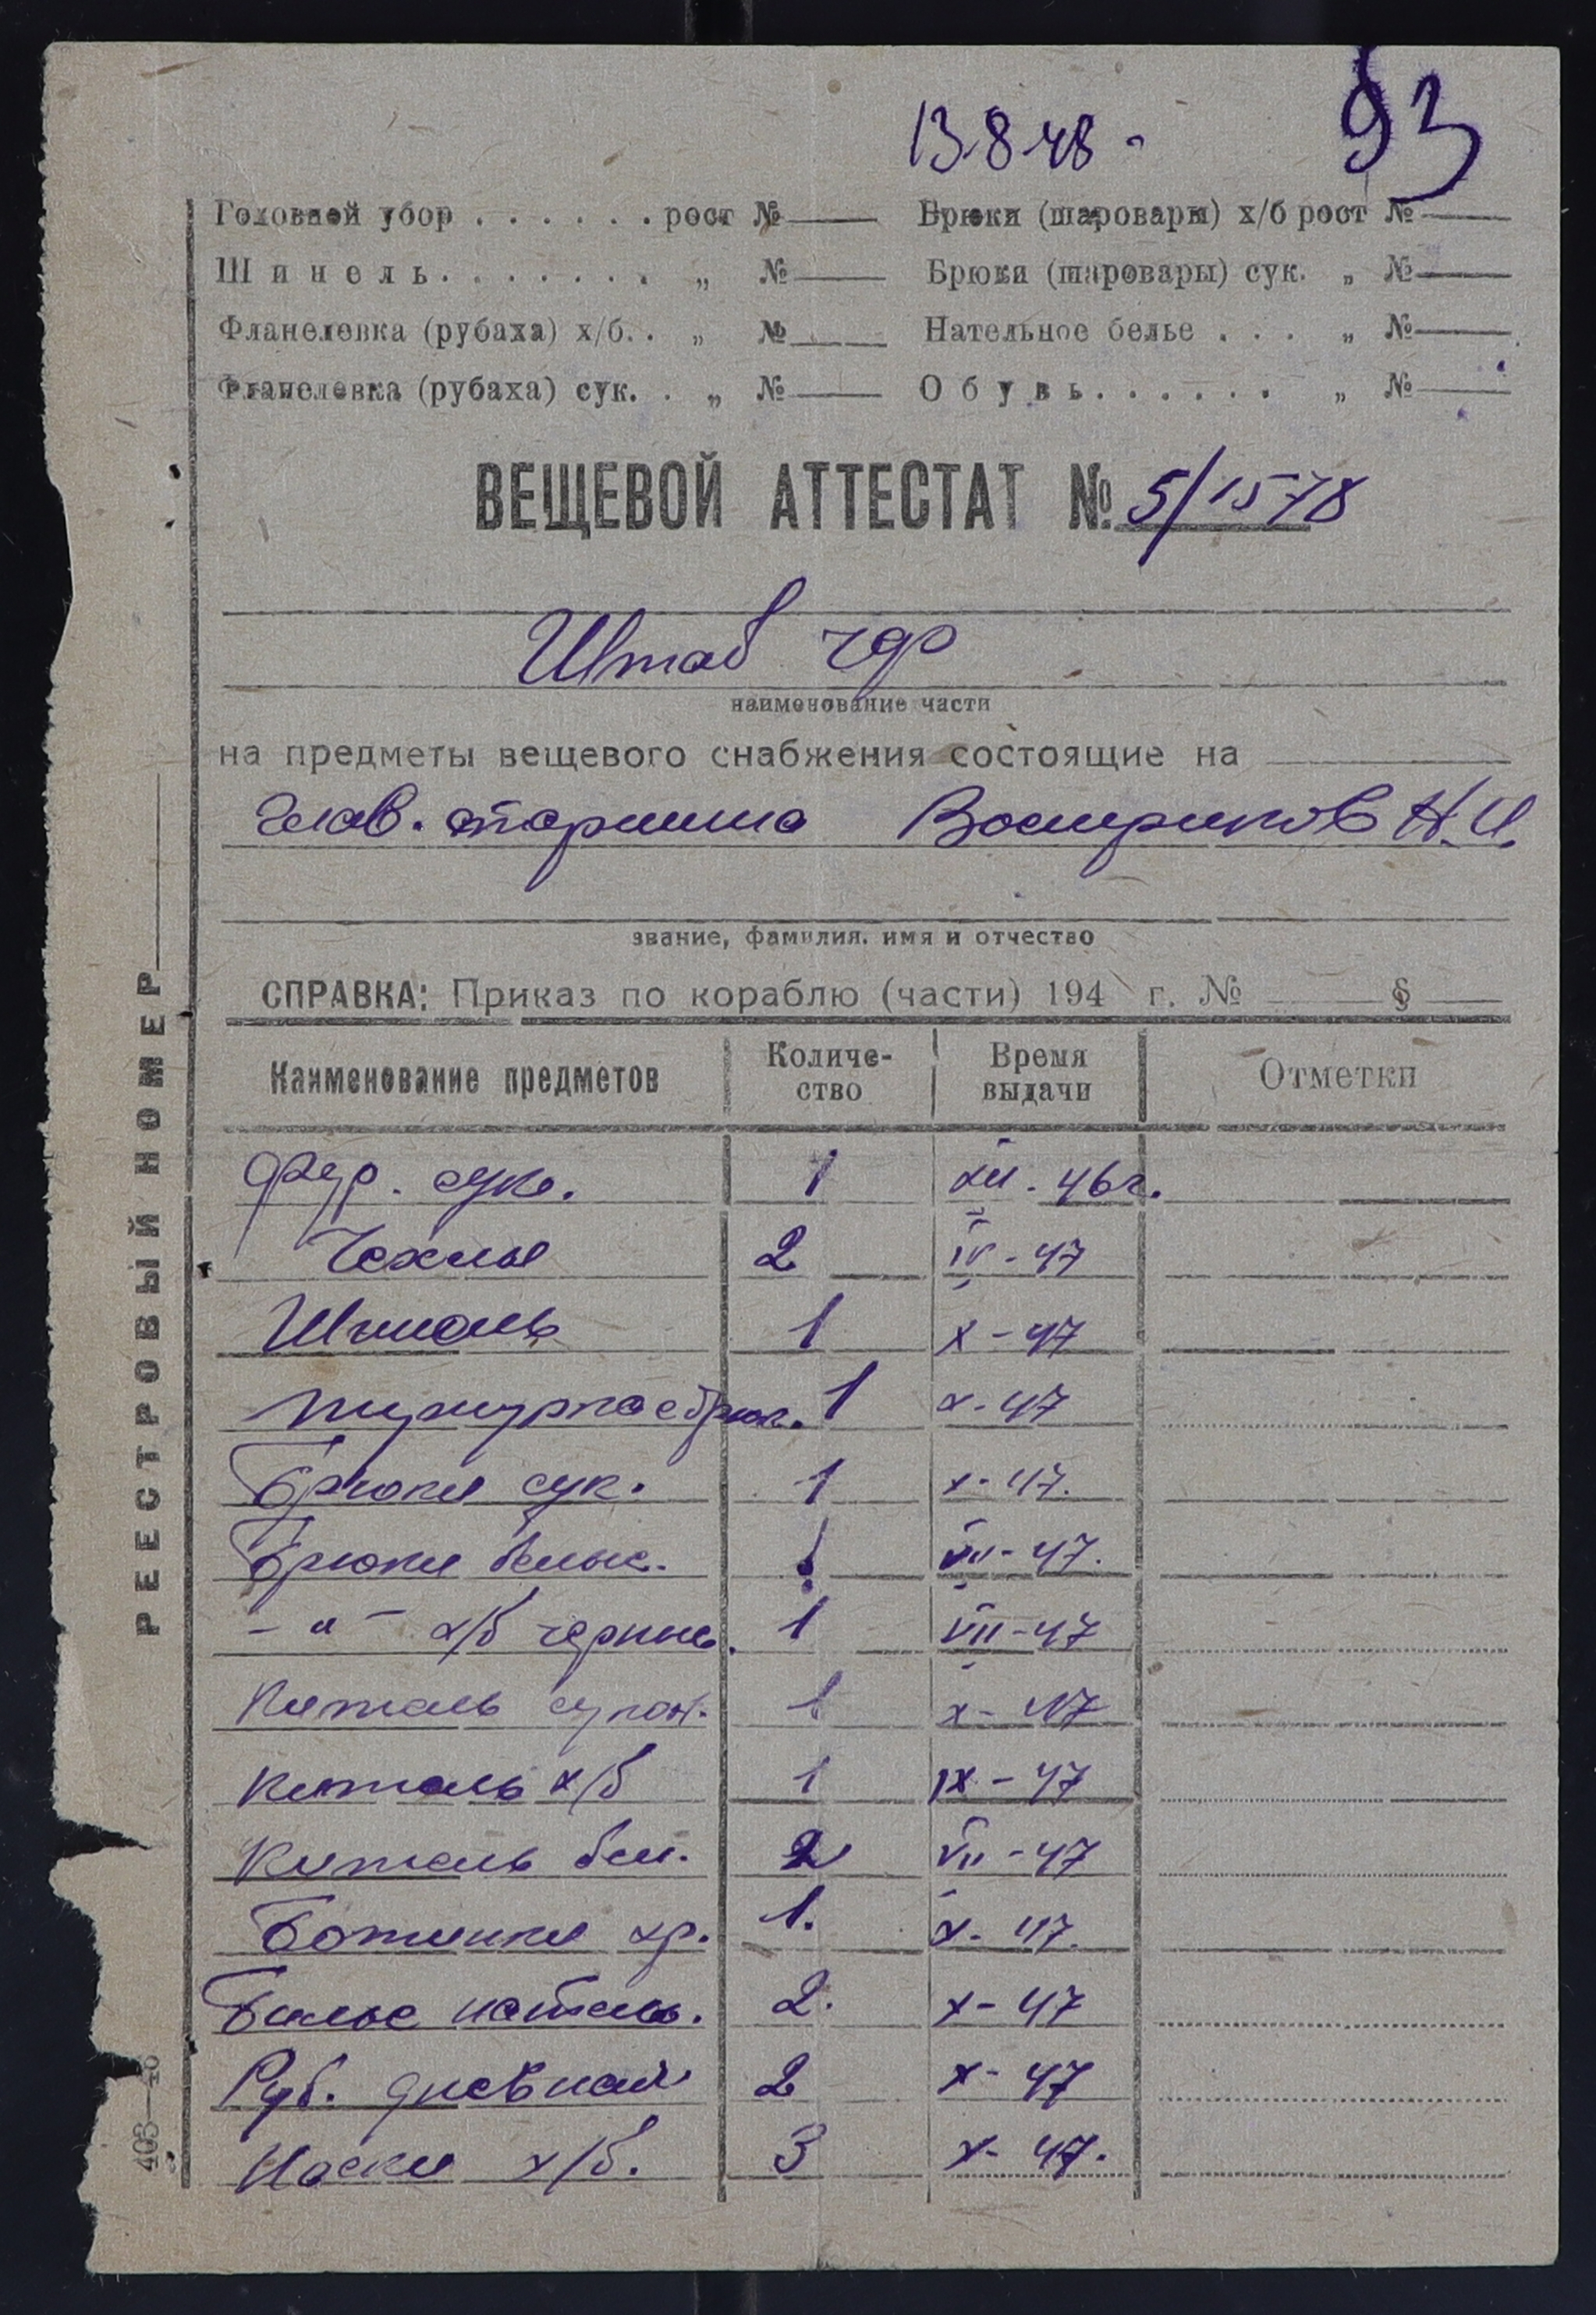 13.8.48 -
93
Головной убор . . . . . . рост № Брюки (шаровары) х/б рост №
Шинель . . . . . . . „ № Брюки (шаровары) сук. „ №
Фланелевка (рубаха) х/б. . „ № Нательное белье . . . „ №
Фланелевка (рубаха) сук. . „ № Обувь . . . . . . „ №
ВЕЩЕВОЙ АТТЕСТАТ № 5/1578
Штаб ЧФ
наименование части
на предметы вещевого снабжения состоящие на
Глав. старшина Востриков Н. И.
звание, фамилия. имя и отчество
СПРАВКА: Приказ по кораблю (части) 194 г. № §
Наименование предметов Количе- Время Отметки
ство выдачи
Фур. сук. 1 XII - 46 г.
Чехлы 2 IV - 47
Шинель 1 X - 47
Тужурка с брюк. 1 X - 47
Брюки сук. 1 X - 47.
Брюки белые. 1 VII - 47.
- " - х/б черные. 1 VII - 47
Китель сукон. 1 X - 47
Китель х/б 1 IX - 47
Китель бел. 2 VII - 47
Ботинки хр. 1. X - 47.
Белье натель. 2. X - 47
Руб. дневная 2 X - 47
Носки х/б. 3 X - 47.
РЕЕСТРОВЫЙ НОМЕР
403—46